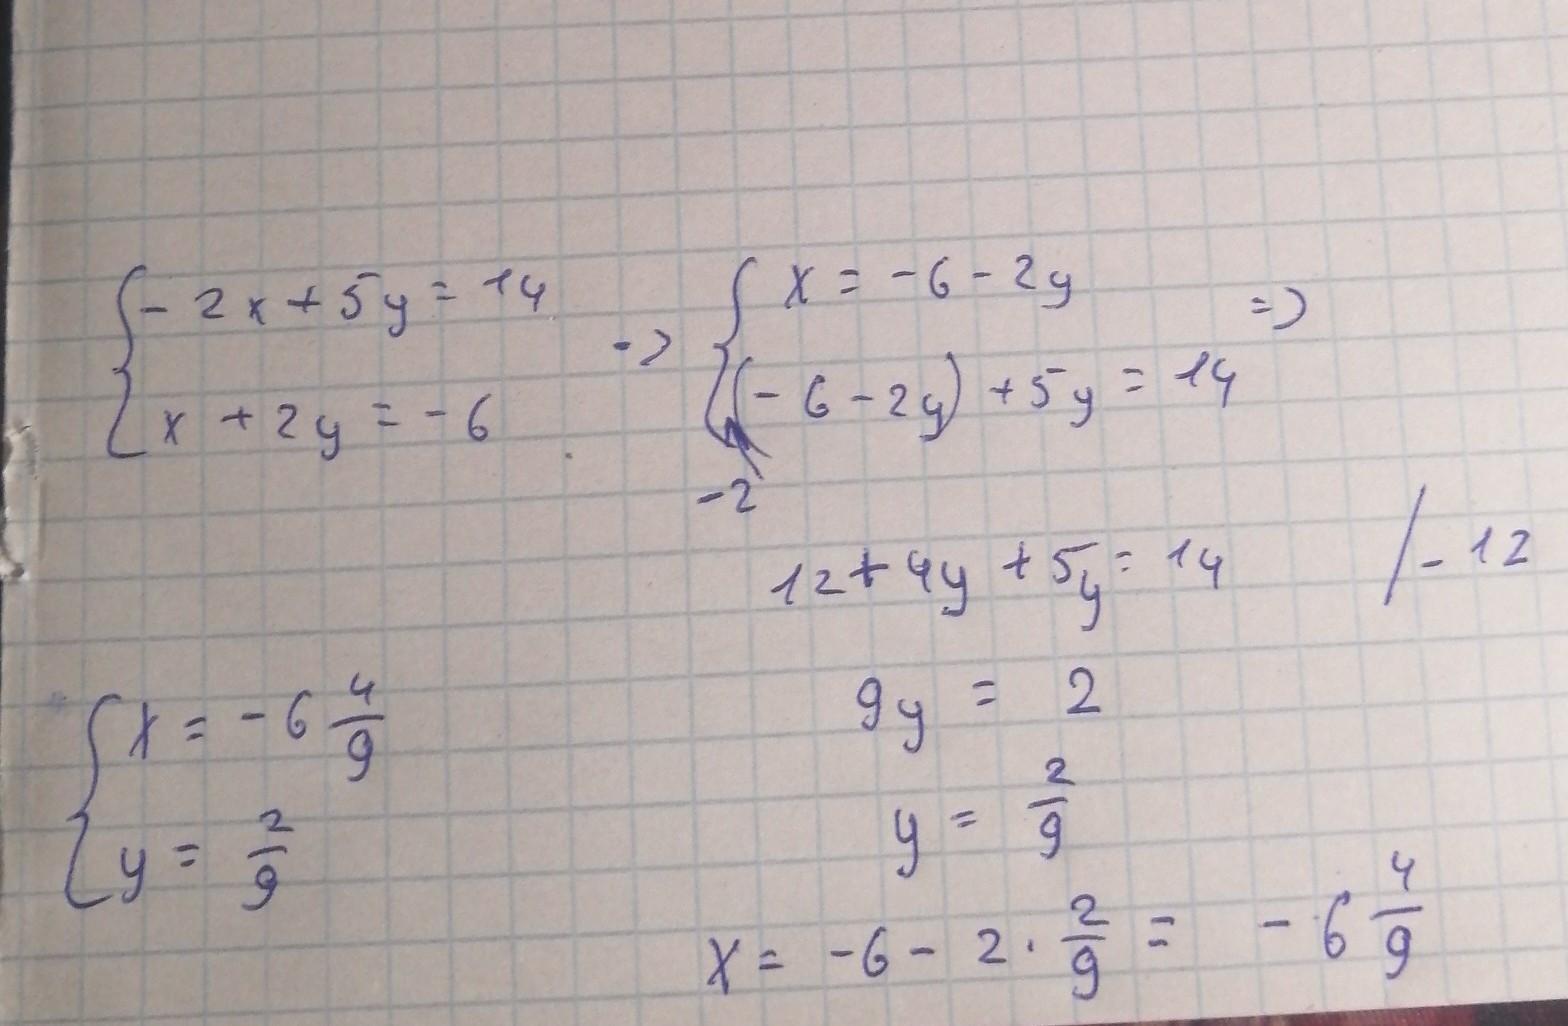 { - 2x + 5y = 14
x + 2y = - 6
-> { x = - 6 - 2y
(- 6 - 2y) + 5y = 14 =>
-2
12 + 4y + 5y = 14 / - 12
9y = 2
y = 2/9
x = -6 - 2 · 2/9 = - 6 4/9
{ x = - 6 4/9
y = 2/9